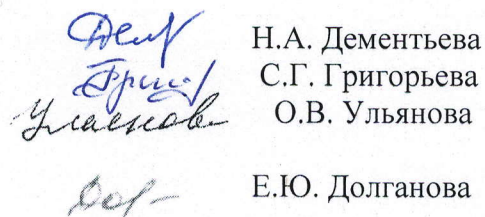 Дем Н.А. Дементьева
Григ С.Г. Григорьева
Ульянова О.В. Ульянова
Дол Е.Ю. Долганова